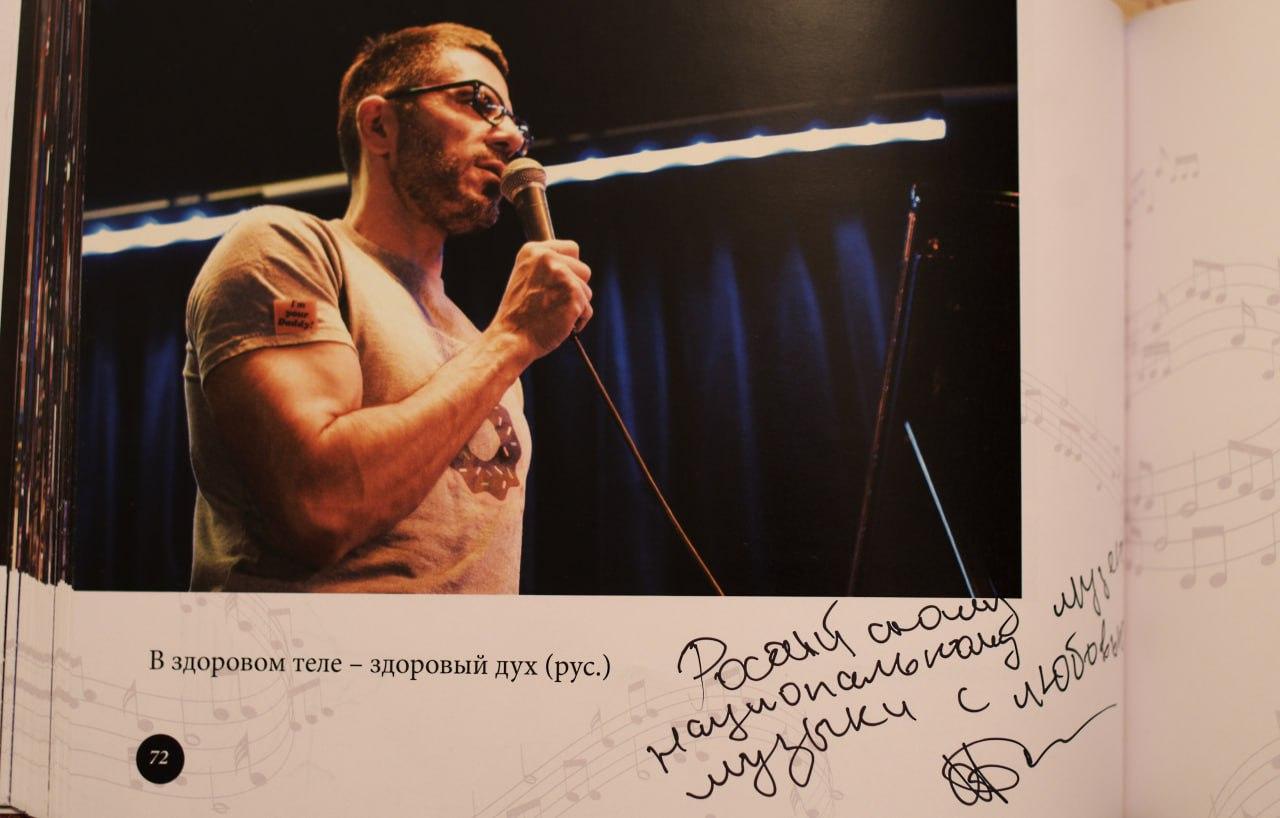 I'm
your
Daddy!
В здоровом теле – здоровый дух (рус.)
72
Российскому
национальному музею
музыки с любовью